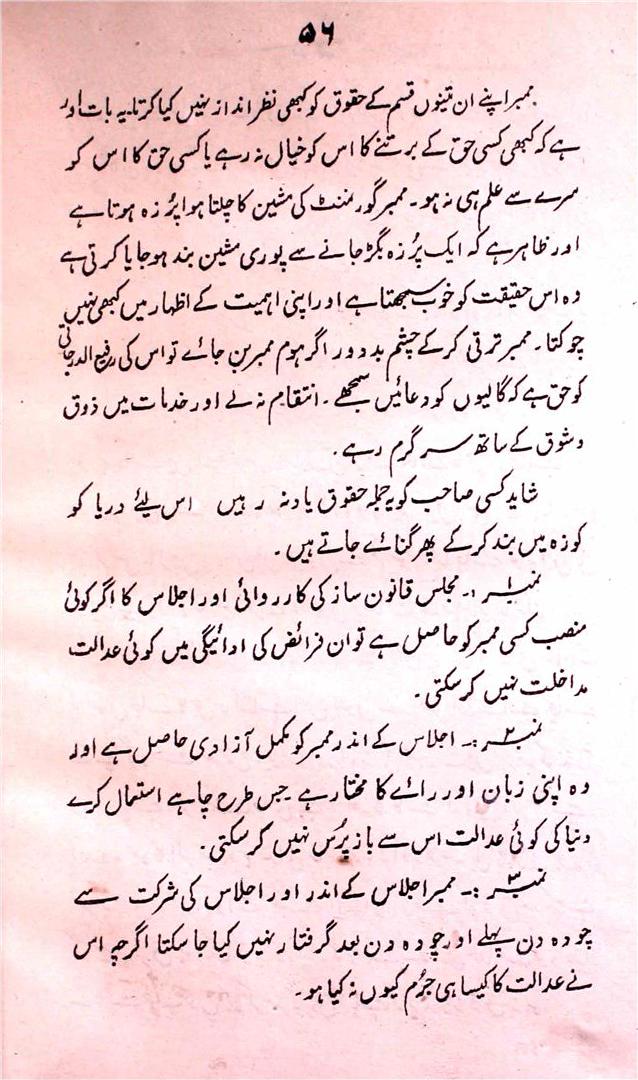 ۵۶
ممبر اپنے ان تینوں قسم کے حقوق کو کبھی نظر انداز نہیں کیا کرتا۔ یہ بات اور
ہے کہ کبھی کسی حق کے برتنے کا اس کو خیال نہ رہے یا کسی حق کا اس کو
سرے سے علم ہی نہ ہو۔ ممبر گورنمنٹ کی مشین کا چلتا ہوا پُرزہ ہوتا ہے
اور ظاہر ہے کہ ایک پُرزہ بگڑ جانے سے پوری مشین بند ہو جایا کرتی ہے
وہ اس حقیقت کو خوب سمجھتا ہے اور اپنی اہمیت کے اظہار میں کبھی نہیں
چوکتا۔ ممبر ترقی کرکے چشم بد دور اگر ہوم ممبر بن جائے تو اس کی رفیع الدرجاتی
کو حق ہے کہ گالیوں کو دعائیں سمجھے۔ انتقام نہ لے اور خدمات میں ذوق
و شوق کے ساتھ سرگرم رہے۔
شاید کسی صاحب کو یہ جملہ حقوق یاد نہ رہیں اس لیئے دریا کو
کوزہ میں بند کرکے پھر گنائے جاتے ہیں۔
نمبر ۱:۔ مجلس قانون ساز کی کارروائی اور اجلاس کا اگر کوئی
منصب کسی ممبر کو حاصل ہے تو ان فرائض کی ادائیگی میں کوئی عدالت
مداخلت نہیں کرسکتی۔
نمبر ۲:۔ اجلاس کے اندر ممبر کو مکمل آزادی حاصل ہے اور
وہ اپنی زبان اور رائے کا مختار ہے جس طرح چاہے استعمال کرے
دنیا کی کوئی عدالت اس سے باز پُرس نہیں کرسکتی۔
نمبر ۳:۔ ممبر اجلاس کے اندر اور اجلاس کی شرکت سے
چودہ دن پہلے اور چودہ دن بعد گرفتار نہیں کیا جا سکتا اگرچہ اس
نے عدالت کا کیسا ہی جرُم کیوں نہ کیا ہو۔